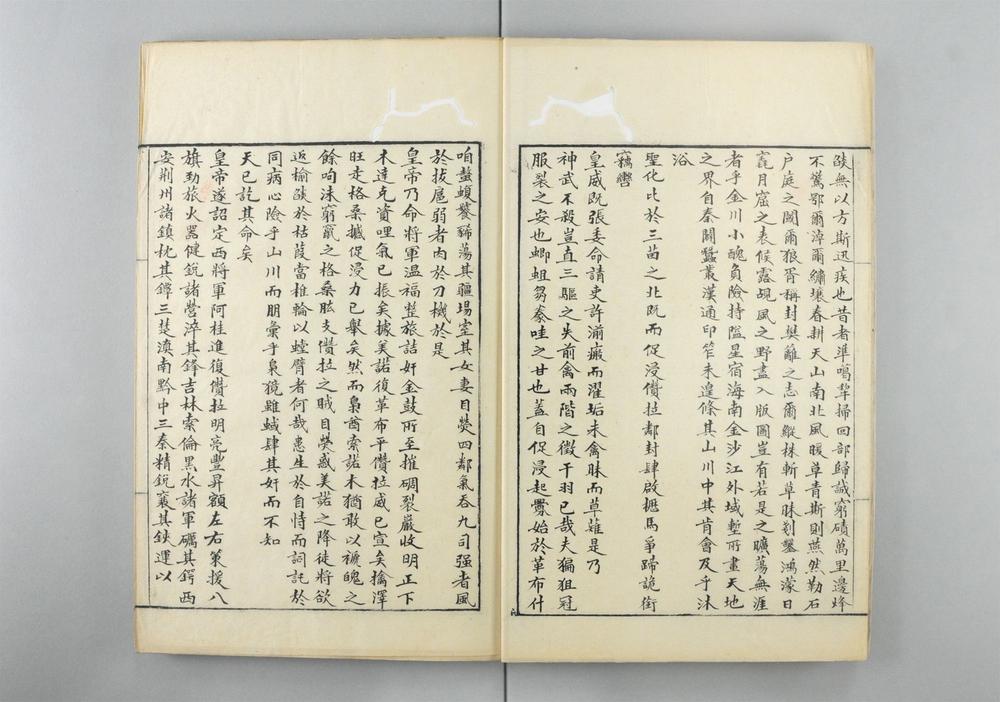 燄無以方斯迅疾也昔者準噶犂掃回部歸誠窮磧萬里邊烽
不驚鄂爾淖爾繡壤春耕天山南北風暖草青斯則燕然勒石
户庭之闗爾狼胥稱封樊籬之志爾縱秣斬草昧剗鑿鴻濛日
竁月窟之表候露覘風之野盡入版圖豈有若是之曠蕩無涯
者乎金川小醜負險持隘星宿海南金沙江外域塹所畫天地
之界自秦闢蠶叢漢通印笮未遑條其山川中其肯會及乎沐
浴
聖化比於三苗之北既而促浸儹拉鄰封肆啟櫪馬爭蹄詭銜
竊轡
皇威既張委命請吏許湔瘢而濯垢未禽昧而草薙是乃
神武不殺豈直三驅之失前禽兩階之徵干羽已哉夫猵狙冠
服裂之安也蝍蛆芻豢哇之甘也蓋自促浸起釁始於革布什
咱螫蝮饕豨蕩其疆場室其女妻目熒四鄰氣吞九司强者風
於拔扈弱者肉於刀機於是
皇帝乃命將軍温福整旅詰奸金鼓所至摧碉裂巖收明正下
木達克資哩氣已振矣據美諾復革布平儹拉威已宣矣擒澤
旺走格桑撼促浸力已舉矣然而梟酋索諾木猶敢以褫魄之
餘呴沫窮竄之格桑眩支儹拉之賊目熒惑美諾之降徒將欲
返榆燄於枯葭當稚輪以螳臂者何哉患生於自恃而詞託於
同病心險乎山川而朋彙乎梟獍雖蜮肆其奸而不知
天已訖其命矣
皇帝遂詔定西將軍阿桂進復儹拉明亮豐昇額左右策援八
旗勁旅火器健鋭諸營淬其鋒吉林索倫黑水諸軍礪其鍔西
安荆州諸鎮枕其鐔三楚滇南黔中三秦精鋭襄其鋏運以